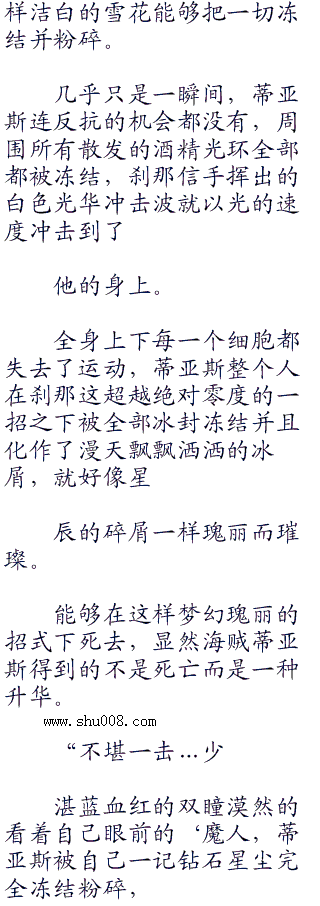 样洁白的雪花能够把一切冻
结并粉碎。
几乎只是一瞬间，蒂亚
斯连反抗的机会都没有，周
围所有散发的酒精光环全部
都被冻结，刹那信手挥出的
白色光华冲击波就以光的速
度冲击到了
他的身上。
全身上下每一个细胞都
失去了运动，蒂亚斯整个人
在刹那这超越绝对零度的一
招之下被全部冰封冻结并且
化作了漫天飘飘洒洒的冰
屑，就好像星
辰的碎屑一样瑰丽而璀
璨。
能够在这样梦幻瑰丽的
招式下死去，显然海贼蒂亚
斯得到的不是死亡而是一种
升华。
www.shu008.com
“不堪一击…少
湛蓝血红的双瞳漠然的
看着自己眼前的‘魔人，蒂
亚斯被自己一记钻石星尘完
全冻结粉碎，